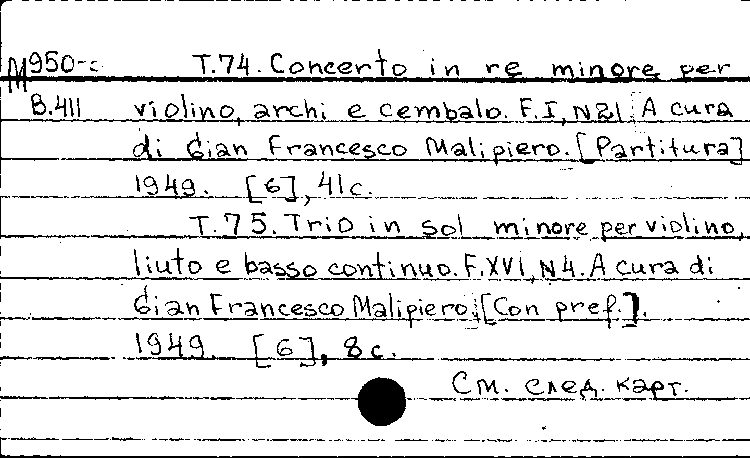 М950-с T.74. Concerto in re minore per
B.411 violino, archi e cembalo. F.I, N21. A cura
di Gian Francesco Malipiero. [Partitura]
1949. [6], 41c.
T.75. Trio in sol minore per violino,
liuto e basso continuo. F.XVI, N4. A cura di
Gian Francesco Malipiero. [Con pref.].
1949. [6], 8c.
См. след. карт.